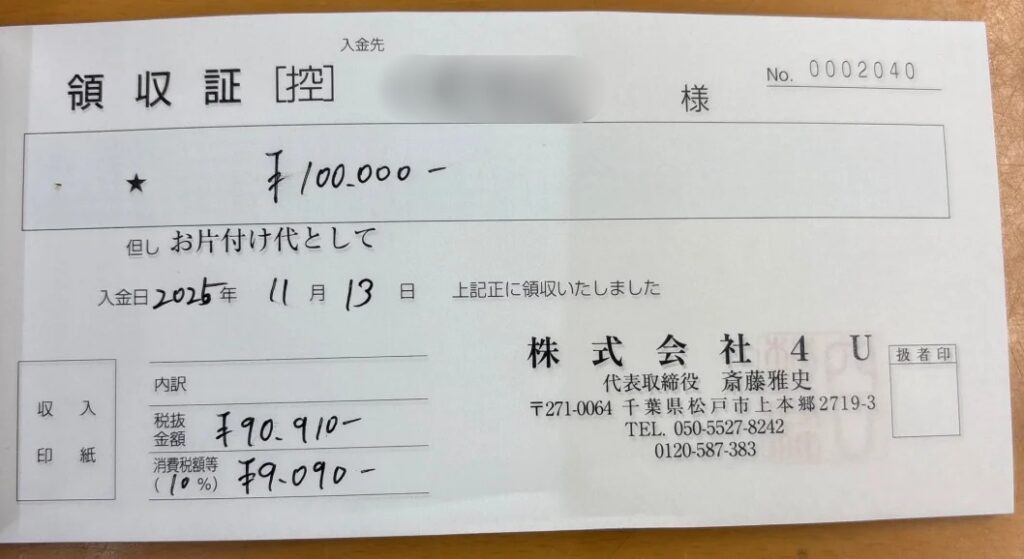 入金先
領収証［控］ 様 No. 0002040
★ ¥100.000-
但し お片付け代として
入金日 2025年 11月 13日 上記正に領収いたしました
収入
印紙
内訳
税抜金額 ¥90.910-
消費税額等(10%) ¥9.090-
株式会社4U
代表取締役 斎藤雅史
〒271-0064 千葉県松戸市上本郷2719-3
TEL. 050-5527-8242
0120-587-383
扱者印